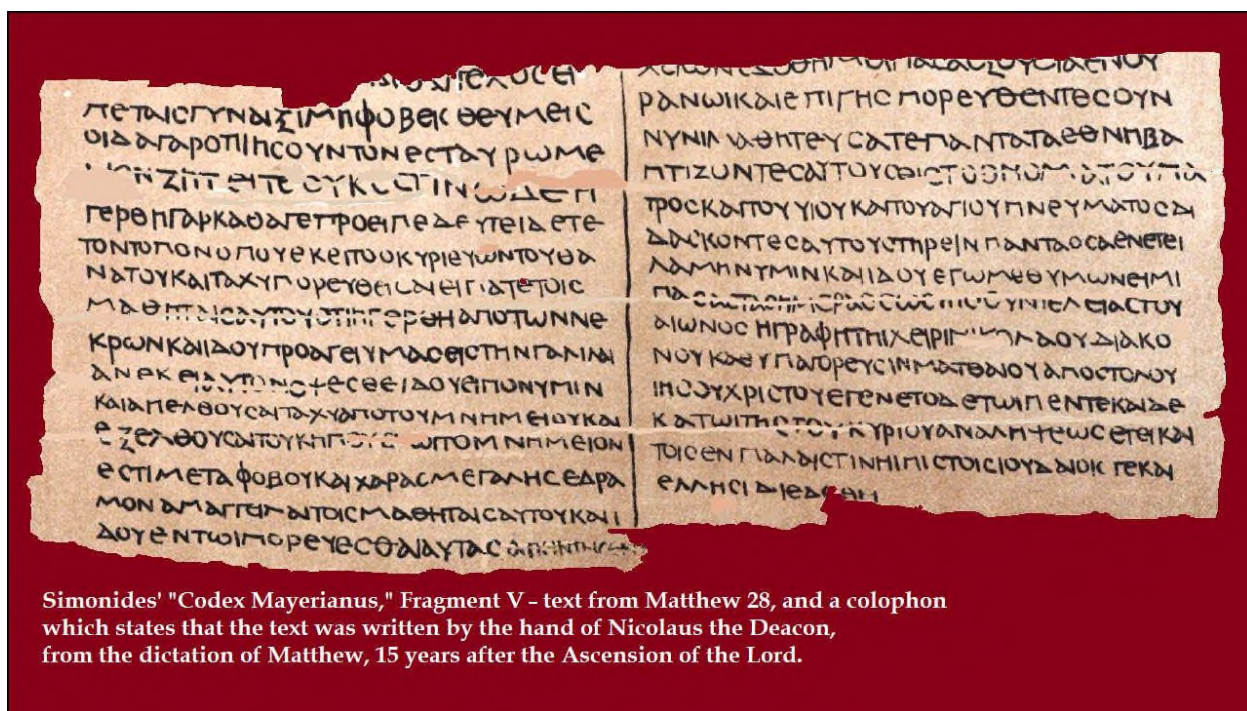 ΛΟCΕΙ
ΠΕΤΑΙCΓΥΝΑΙΞΙΜΗΦΟΒΕΙCΘΕΥΜΕΙC
ΟΙΔΑΓΑΡΟΤΙΙΗCΟΥΝΤΟΝΕCΤΑΥΡΩΜΕ
ΖΗΤΕΙΤΕΟΥΚΕCΤΙΝΩΔΕΗ
ΓΕΡΘΗΓΑΡΚΑΘΑΓΕΠΡΟΕΙΠΕΔΕΥΤΕΙΔΕΤΕ
ΤΟΝΤΟΠΟΝΟΠΟΥΕΚΕΙΤΟΟΚΥΡΙΕΥΩΝΤΟΥΘΑ
ΝΑΤΟΥΚΑΙΤΑΧΥΠΟΡΕΥΘΕΙCΑΙΕΙΠΑΤΕΤΟΙC
ΜΑΘΗΤΑΙCΑΥΤΟΥΟΤΙΗΓΕΡΘΗΑΠΟΤΩΝΝΕ
ΚΡΩΝΚΑΙΙΔΟΥΠΡΟΑΓΕΙΥΜΑCΕΙCΤΗΝΓΑΛΙΛΑΙ
ΑΝΕΚΕΙΑΥΤΟΝΟΨΕCΘΕΙΔΟΥΕΙΠΟΝΥΜΙΝ
ΚΑΙΑΠΕΛΘΟΥCΑΙΤΑΧΥΑΠΟΤΟΥΜΝΗΜΕΙΟΥΚΑΙ
ΕΞΕΛΘΟΥCΑΙΤΟΥΚΗΠΟΥ ΤΟΜΝΗΜΕΙΟΝ
ΕCΤΙΜΕΤΑΦΟΒΟΥΚΑΙΧΑΡΑCΜΕΓΑΛΗCΕΔΡΑ
ΜΟΝΑΠΑΓΓΕΙΛΑΙΤΟΙCΜΑΘΗΤΑΙCΑΥΤΟΥΚΑΙΙ
ΔΟΥΕΝΤΩΙΠΟΡΕΥΕCΘΑΙΑΥΤΑCΑΠΗΝΤΗC
ΕΔΟΘΗΜΟΙΠΑCΑΕΞΟΥCΙΑΕΝΟΥ
ΡΑΝΩΙΚΑΙΕΠΙΓΗCΠΟΡΕΥΘΕΝΤΕCΟΥΝ
ΝΥΝΙΜΑΘΗΤΕΥCΑΤΕΠΑΝΤΑΤΑΕΘΝΗΒΑ
ΠΤΙΖΟΝΤΕCΑΥΤΟΥCΕΙCΤΟΟΝΟΜΑΤΟΥΠΑ
ΤΡΟCΚΑΙΤΟΥΥΙΟΥΚΑΙΤΟΥΑΓΙΟΥΠΝΕΥΜΑΤΟCΔΙ
ΔΑCΚΟΝΤΕCΑΥΤΟΥCΤΗΡΕΙΝΠΑΝΤΑΟCΑΕΝΕΤΕΙ
ΛΑΜΗΝΥΜΙΝΚΑΙΙΔΟΥΕΓΩΜΕΘΥΜΩΝΕΙΜΙ
ΠΑCΑCΤΑCΗΜΕΡΑCΕΩCΤΗCCΥΝΤΕΛΕΙΑCΤΟΥ
ΑΙΩΝΟCΗΓΡΑΦΗΤΗΙΧΕΙΡΙΝΙΚΟΛΑΟΥΔΙΑΚΟ
ΝΟΥΚΑΘΥΠΑΓΟΡΕΥCΙΝΜΑΤΘΑΙΟΥΑΠΟCΤΟΛΟΥ
ΙΗCΟΥΧΡΙCΤΟΥΕΓΕΝΕΤΟΔΕΤΩΙΠΕΝΤΕΚΑΙΔΕ
ΚΑΤΩΙΤΗCΤΟΥΚΥΡΙΟΥΑΝΑΛΗΨΕΩCΕΤΕΙΚΑΙ
ΤΟΙCΕΝΠΑΛΑΙCΤΙΝΗΙΠΙCΤΟΙCΙΟΥΔΑΙΟΙCΤΕΚΑΙ
ΕΛΛΗCΙΔΙΕΔΟΘΗ
Simonides' "Codex Mayerianus," Fragment V – text from Matthew 28, and a colophon
which states that the text was written by the hand of Nicolaus the Deacon,
from the dictation of Matthew, 15 years after the Ascension of the Lord.